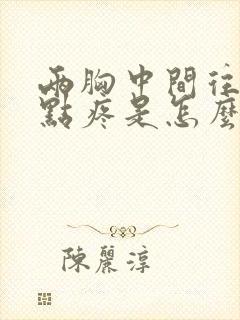 兩胸中間往
點疼是怎麼
陳麗淳